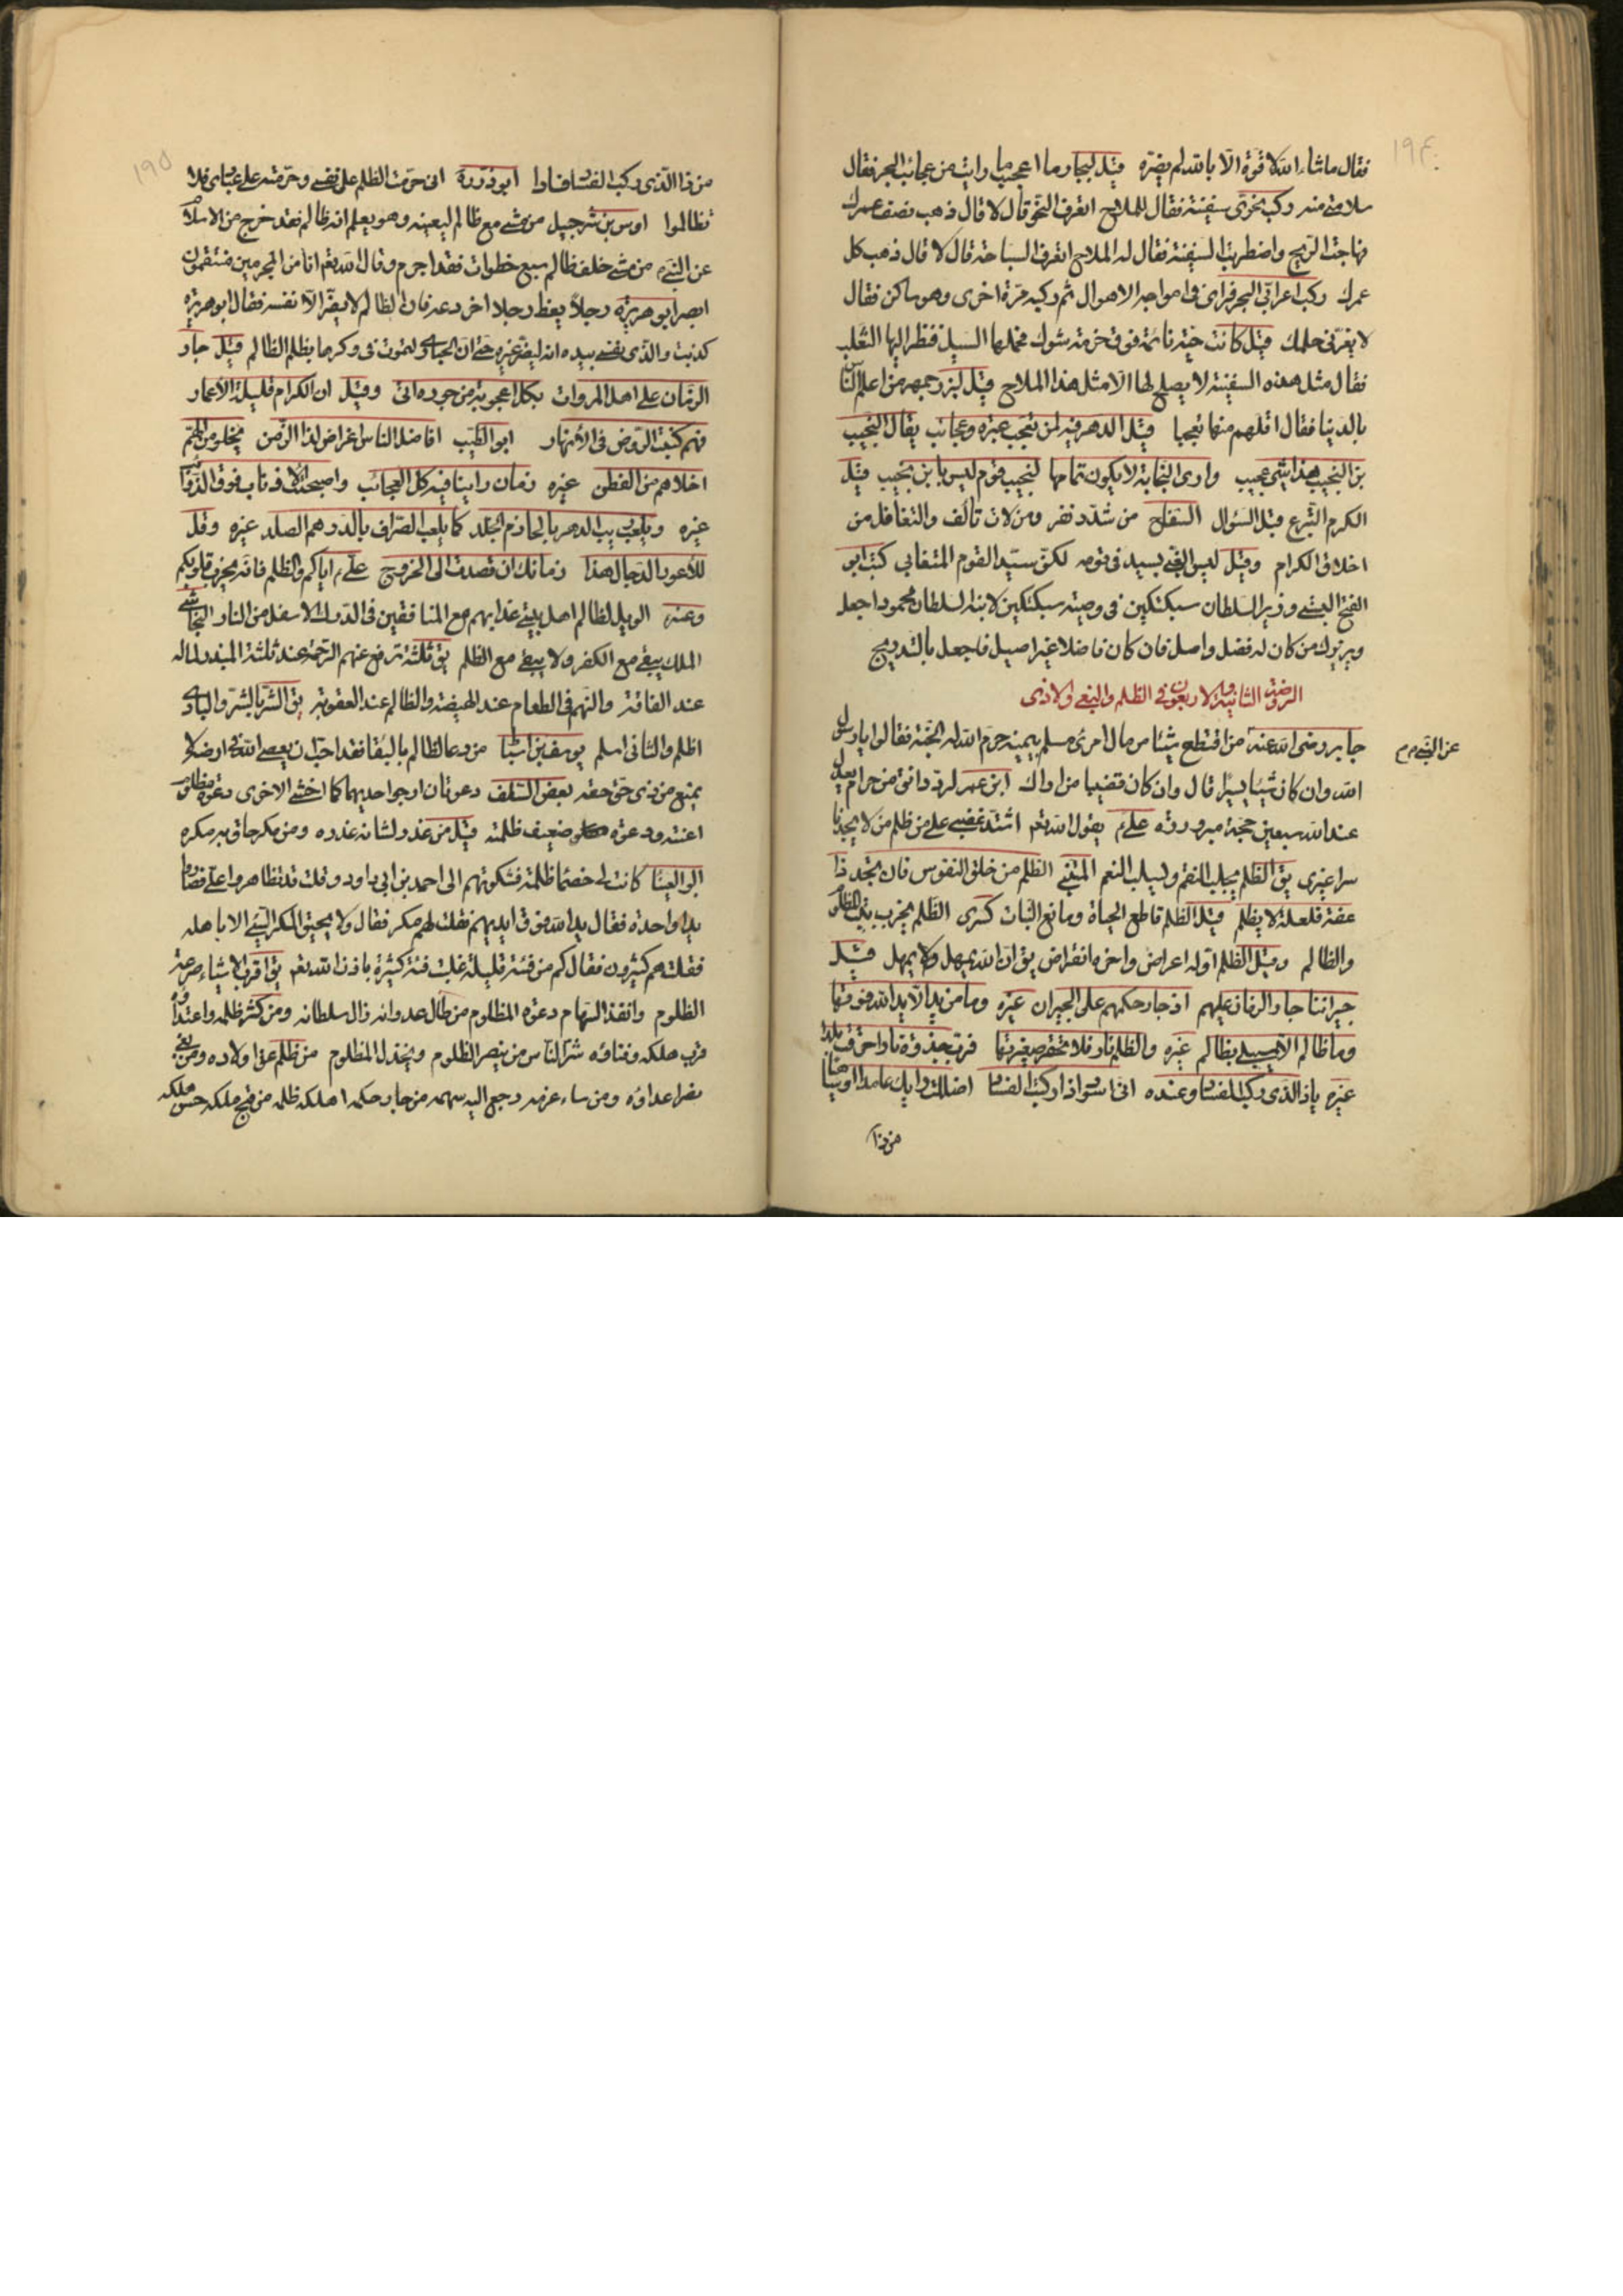 ١٩٤
فقال ما شاء الله لا قوة الا بالله لم يضره قيل لبحار ما اعجب ما رايت من عجائب البحر فقال
سلامتى منه ركب نحوى سفينة فقال للملاح اتعرف النحو قال لا قال ذهب نصف عمرك
فهاجت الريح واضطربت السفينة فقال له الملاح اتعرف السباحة قال لا قال ذهب كل
عمرك ركب اعرابى البحر فراى فى امواجه الاهوال ثم ركبه مرة اخرى وهو ساكن فقال
لا يغرنى حلمك قيل كانت حية نائمة فوق حزمة شوك فحملها السيل فنظر اليها الثعلب
فقال مثل هذه السفينة لا يصلح لها الا مثل هذا الملاح قيل لبزرجمهر من اعلم الناس
بالدنيا فقال اقلهم منها تعجبا قيل الدهر فيه لمن تعجب عبرة وعجائب يقال النجيب
بن النجيب هذا شئ عجيب وارى النجابة لا يكون تمامها لنجيب قوم ليس بابن نجيب قيل
الكرم التبرع قبل السؤال السفاح من شدد نفر ومن لان تألف والتغافل من
اخلاق الكرام وقيل ليس الغبى بسيد فى قومه لكن سيد القوم المتغابى كتب ابو
الفتح البستى وزير السلطان سبكتكين فى وصية سبكتكين لابنه السلطان محمود اجعل
وزيرك من كان له فضل واصل فان كان فاضلا غير اصيل فاجعل بالتدريج
الروضة الثانية والاربعون فى الظلم والبغى والاذى
جابر رضى الله عنه من اقتطع شيئا من مال امرئ مسلم بيمينه حرم الله له الجنة فقالوا يا رسول
عن النبى م م
الله وان كان شيئا يسيرا قال وان كان قضيبا من اراك ابن عمر لرد دانق من حرام يعدل
عند الله سبعين حجة مبرورة على م يقول الله تعم اشتد غضبى على من ظلم من لا يجد ناصرا
غيرى يق الظلم يجلب النقم ويسلب النعم المتنبى الظلم من خلق النفوس فان تجد ذا
عفة فلعلة لا يظلم قيل الظلم قاطع الحياة ومانع النبات كسرى الظلم يخرب بيت المظلوم
والظالم وقيل الظلم اوله اعراض واخره انقراض يق ان الله يمهل ولا يهمل قيل
جيراننا جار الزمان عليهم اذ جار حكمهم على الجيران غيره وما من يد الا يد الله فوقها
وما ظالم الا سيبلى بظالم غيره والظلم نار فلا تحقر صغيرتها فرب جذوة نار احرقت بلدا
غيره
من ذا
١٩٥
من ذا الذى ركب الفساد فسادا ابو ذر رة انى حرمت الظلم على نفسى وحرمته على عبادى فلا
تظالموا اوس بن شرحبيل من مشى مع ظالم ليعينه وهو يعلم انه ظالم فقد خرج من الاسلام
عن النبى م من مشى خلف ظالم سبع خطوات فقد اجرم وقال الله تعم انا من المجرمين منتقمون
ابصر ابو هريرة رجلا يعظ رجلا اخر دعه فان الظالم لا يضر الا نفسه فقال ابو هريرة
كذبت والذى نفسى بيده انه ليضر غيره حتى ان الحبارى لتموت فى وكرها بظلم الظالم قيل جار
الزمان على اهل المروات بكل اعجوبة من جوره اتى وقيل ان الكرام قليلة الاعمار
فهم كنبت الروض فى الانهار ابو الطيب افاضل الناس اغراض لذا الزمن يخلو من الهم
اخلاهم من الفطن غيره زمان راينا فيه كل العجائب واصبحت الاذناب فوق الذوائب
غيره ويلعب ريب الدهر بالحازم الجلد كما يلعب الصراف بالدرهم الصلد غيره وقل
للاعور الدجال هذا زمانك ان قصدت الى الخروج على م اياكم والظلم فانه يخرب قلوبكم
وعنه الويل لظالم اهل بيتى عذابهم مع المنافقين فى الدرك الاسفل من النار النجاشى
الملك يبقى مع الكفر ولا يبقى مع الظلم يق ثلثة ترفع عنهم الرحمة عند ثلثة المبذر لماله
عند الفاقة والنهم فى الطعام عند الهيضة والظالم عند العقوبة يق الشر بالشر والبادى
اظلم والثانى اسلم يوسف بن اسباط من دعا لظالم بالبقا فقد احب ان يعصى الله فى ارضه لا
يمنع من ذى حق حقه بعض السلف دعوتان ارجو احديهما كما اخشى الاخرى دعوة مظلوم
اعنته ودعوة ضعيف ظلمته قيل من غدر لشانه غدره ومن مكر حاق به مكره
ابو العينا كانت لى خصما ظلمة فشكوتهم الى احمد بن ابى داود وقلت قد تظاهروا على فصاروا
يدا واحدة فقال يد الله فوق ايديهم فقلت لهم مكر فقال ولا يحيق المكر السيئ الا باهله
فقلت هم كثيرون فقال كم من فئة قليلة غلبت فئة كثيرة باذن الله تعم يق اقرب الاشياء صرعة
الظلوم وانفذ السهام دعوة المظلوم من طال عدوانه زال سلطانه ومن كثر ظلمه واعتداؤه
قرب هلكه وفناؤه شر الناس من ينصر الظلوم ويخذل المظلوم من ظلم عق اولاده ومن بغى
نصر اعداؤه ومن ساء عزمه رجع اليه سهمه من جار حكمه اهلكه ظلمه من قبح ملكه حسن هلكه